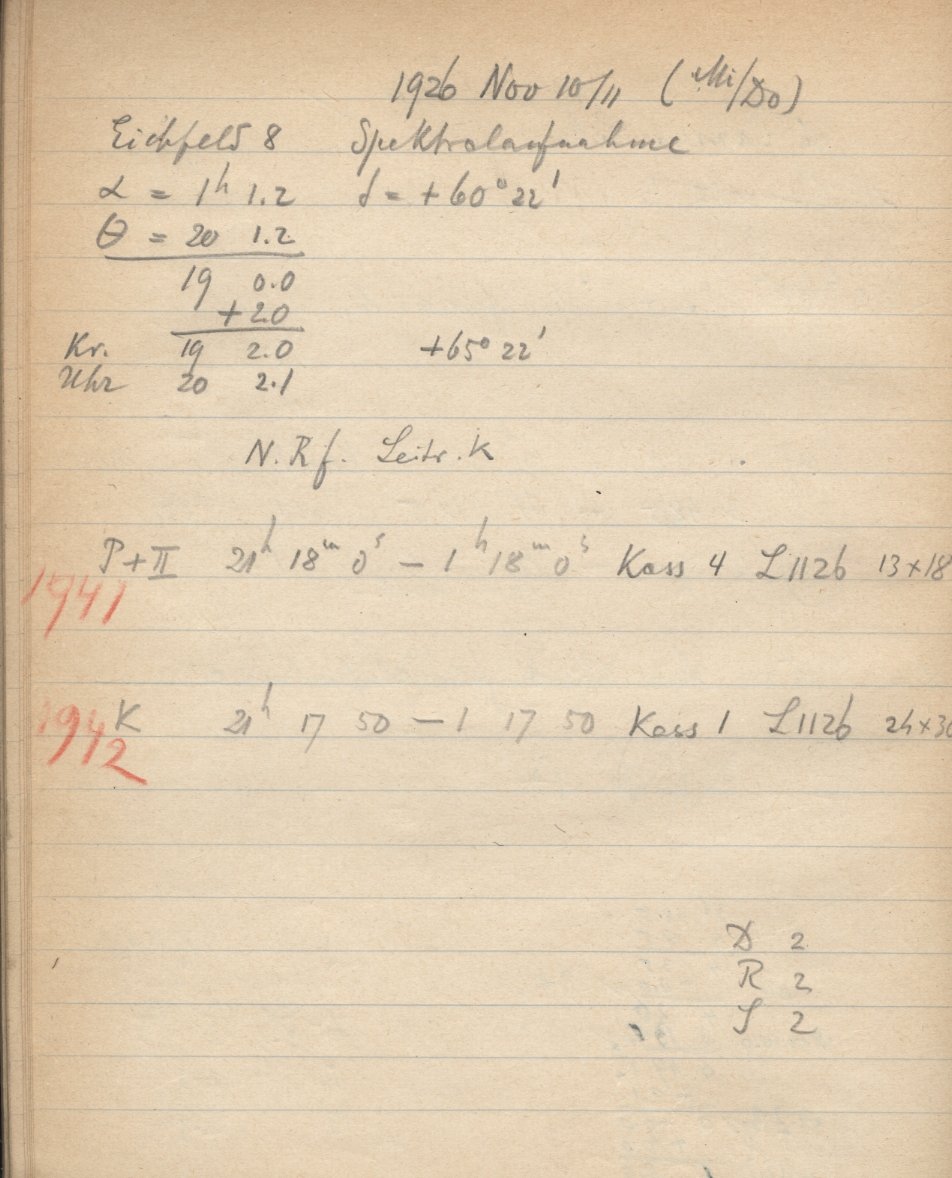 1926 Nov 10/11 (Mi/Do)
Eichfeld 8 Spektralaufnahme
α = 1h 1.2 δ = +60° 22'
θ = 20 1.2
19 0.0
+2.0
Kr. 19 2.0 +65° 22'
Uhr 20 2.1
N. Rf. Leitr. K
P+II 21h 18m 0s – 1h 18m 0s Kass 4 L 1126 13×18
1941
1942 K 21h 17 50 – 1 17 50 Kass 1 L 1126 24×30
D 2
R 2
S 2